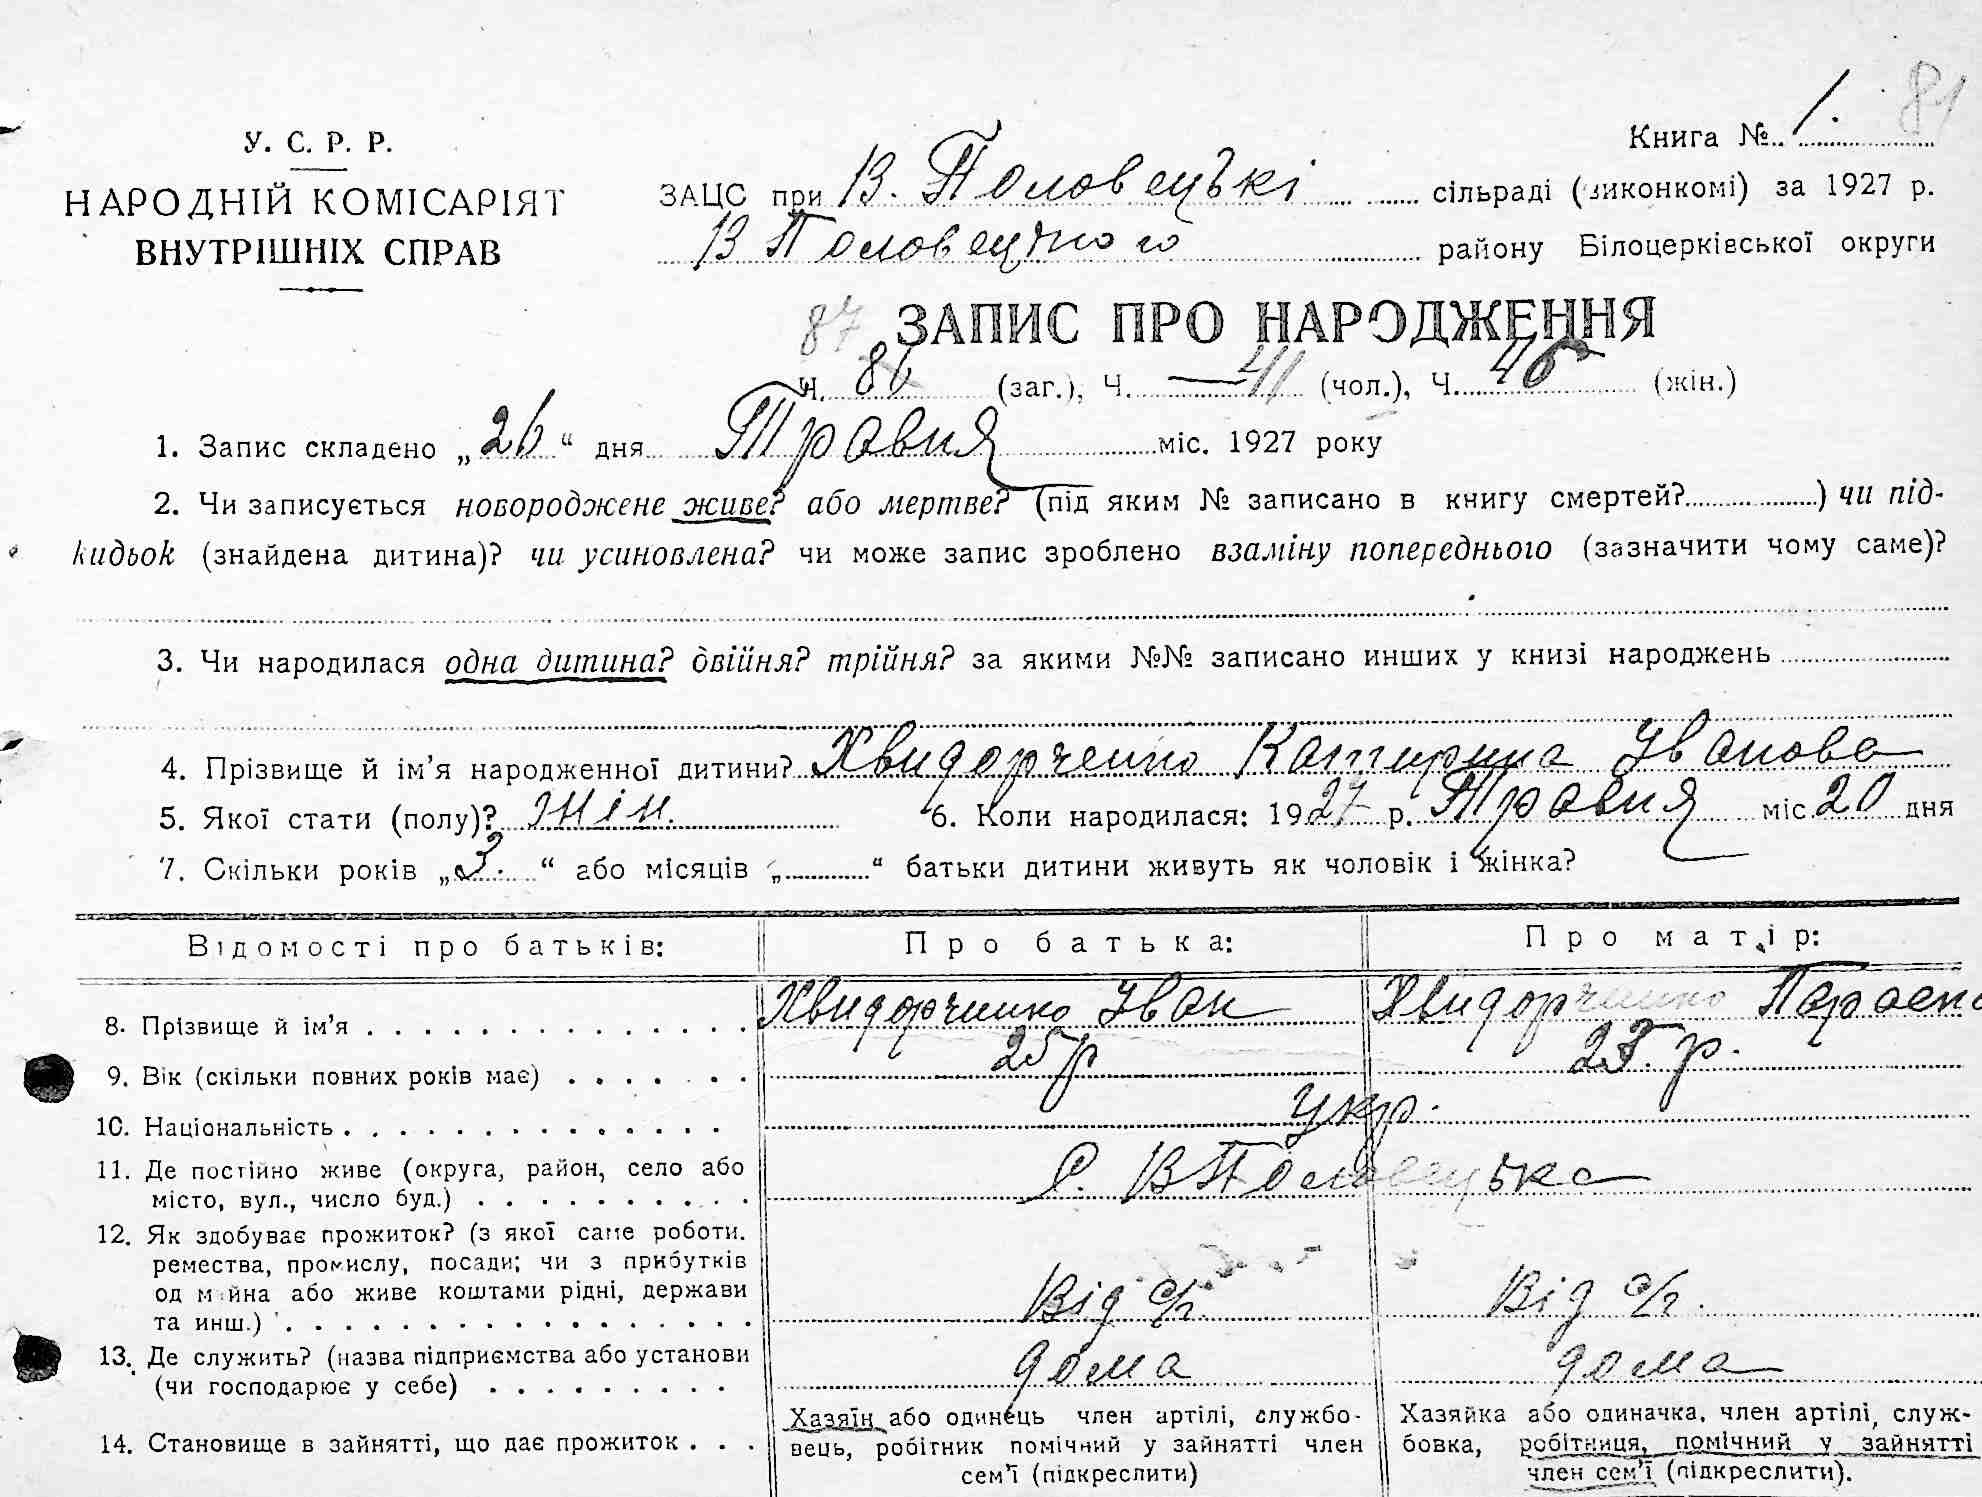 Книга № 1. 81
У. С. Р. Р.
НАРОДНІЙ КОМІСАРІЯТ
ВНУТРІШНІХ СПРАВ
ЗАЦС при В. Половецькі сільраді (виконкомі) за 1927 р.
В Половецького району Білоцерківської округи
87 ЗАПИС ПРО НАРОДЖЕННЯ
Ч. 86 (заг.), Ч. — 41 (чол.), Ч. 46 (жін.)
1. Запис складено „26“ дня Травня міс. 1927 року
2. Чи записується новороджене живе? або мертве? (під яким № записано в книгу смертей?..........) чи під-
кидьок (знайдена дитина)? чи усиновлена? чи може запис зроблено взаміну попереднього (зазначити чому саме)?
3. Чи народилася одна дитина? двійня? трійня? за якими №№ записано инших у книзі народжень
4. Прізвище й ім’я народженної дитини? Хвидорченко Катирина Іванова
5. Якої стати (полу)? жін. 6. Коли народилася: 1927 р. Травня міс. 20 дня
7. Скільки років „3.“ або місяців „..........“ батьки дитини живуть як чоловік і жінка?
Відомості про батьків: Про батька: Про матір:
8. Прізвище й ім’я . . . Хвидорченко Іван Хвидорченко Параска
9. Вік (скільки повних років має) . . . 25 р 23. р.
10. Національність . . . укр.
11. Де постійно живе (округа, район, село або
місто, вул., число буд.) . . . С. В Половецька
12. Як здобуває прожиток? (з якої саме роботи.
ремества, промислу, посади; чи з прибутків
од майна або живе коштами рідні, держави
та инш.) . . . Від с/г. Від с/г.
13. Де служить? (назва підприємства або установи
(чи господарює у себе) . . . дома дома
14. Становище в зайнятті, що дає прожиток . . .
Хазяїн або одинець член артілі, службо-
вець, робітник помічний у зайнятті член
сем’ї (підкреслити)
Хазяйка або одиначка, член артілі, служ-
бовка, робітниця, помічний у зайнятті
член сем’ї (підкреслити).